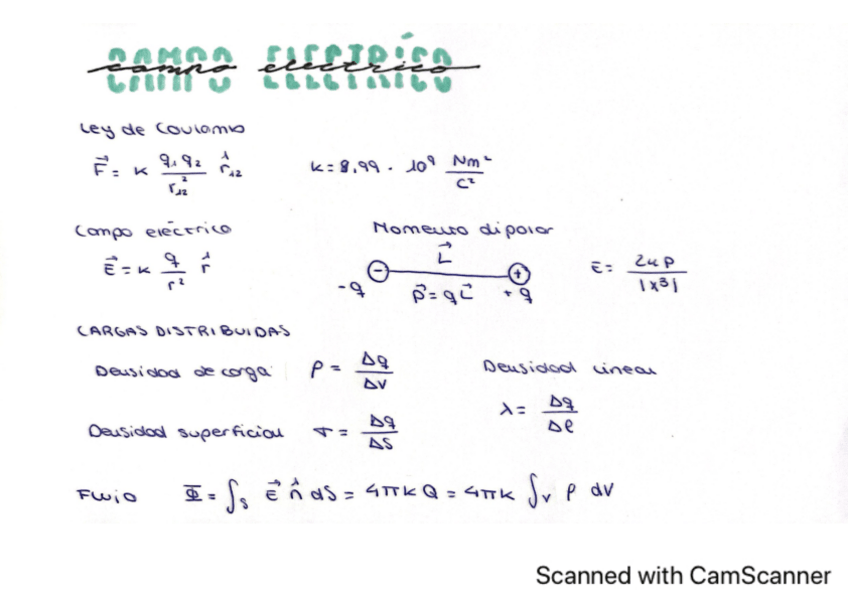 CAMPO ELÉCTRICO
campo electrico
Ley de Coulomb
F⃗ = K q₁q₂ / r₁₂² r̂₁₂    K = 8,99 · 10⁹ Nm² / C²
Campo eléctrico    Momento dipolar
E⃗ = K q / r² r̂    L⃗    E = 2KP / |x³|
-q    p⃗ = qL⃗    +q
CARGAS DISTRIBUIDAS
Densidad de carga    ρ = Δq / ΔV    Densidad lineal
λ = Δq / Δl
Densidad superficial    σ = Δq / ΔS
Flujo    Φ = ∫s E⃗ n̂ dS = 4πKQ = 4πK ∫v ρ dV
Scanned with CamScanner